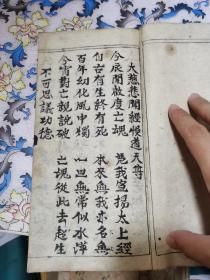 大慈悲聞經悞道天尊
今辰開啟度亡魂　兎我宣揚太上經
自古有生終有死　本來無我亦名無
百年幻化風中燭　一旦無常似水漚
今宵對亡親說破　亡魂從此去超生
不可思議功德